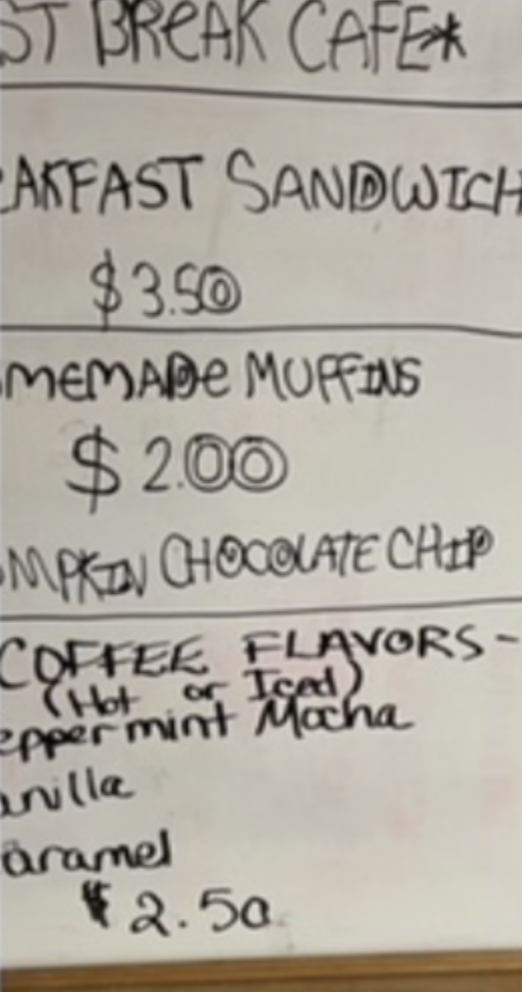 ST BREAK CAFE*
EAKFAST SANDWICH
$3.50
MEMADE MUFFINS
$2.00
MPKIN CHOCOLATE CHIP
COFFEE FLAVORS-
(Hot or Iced)
eppermint Mocha
anilla
aramel
$2.50